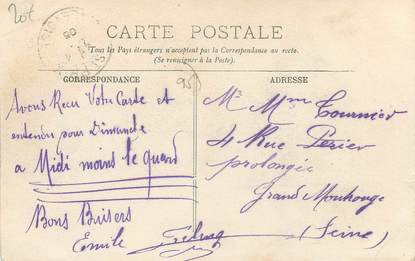 20t
CARTE POSTALE
Tous les Pays étrangers n'acceptent pas la Correspondance au recto.
(Se renseigner à la Poste)
CORRESPONDANCE
ADRESSE
95
Avons Recu Votre Carte et
entendu pour Dimanche
a Midi moins le quard
Bons Baisers
Emile
Mr Mme Tournier
4 Rue Perier
prolongée
Grand Montrouge
(Seine)